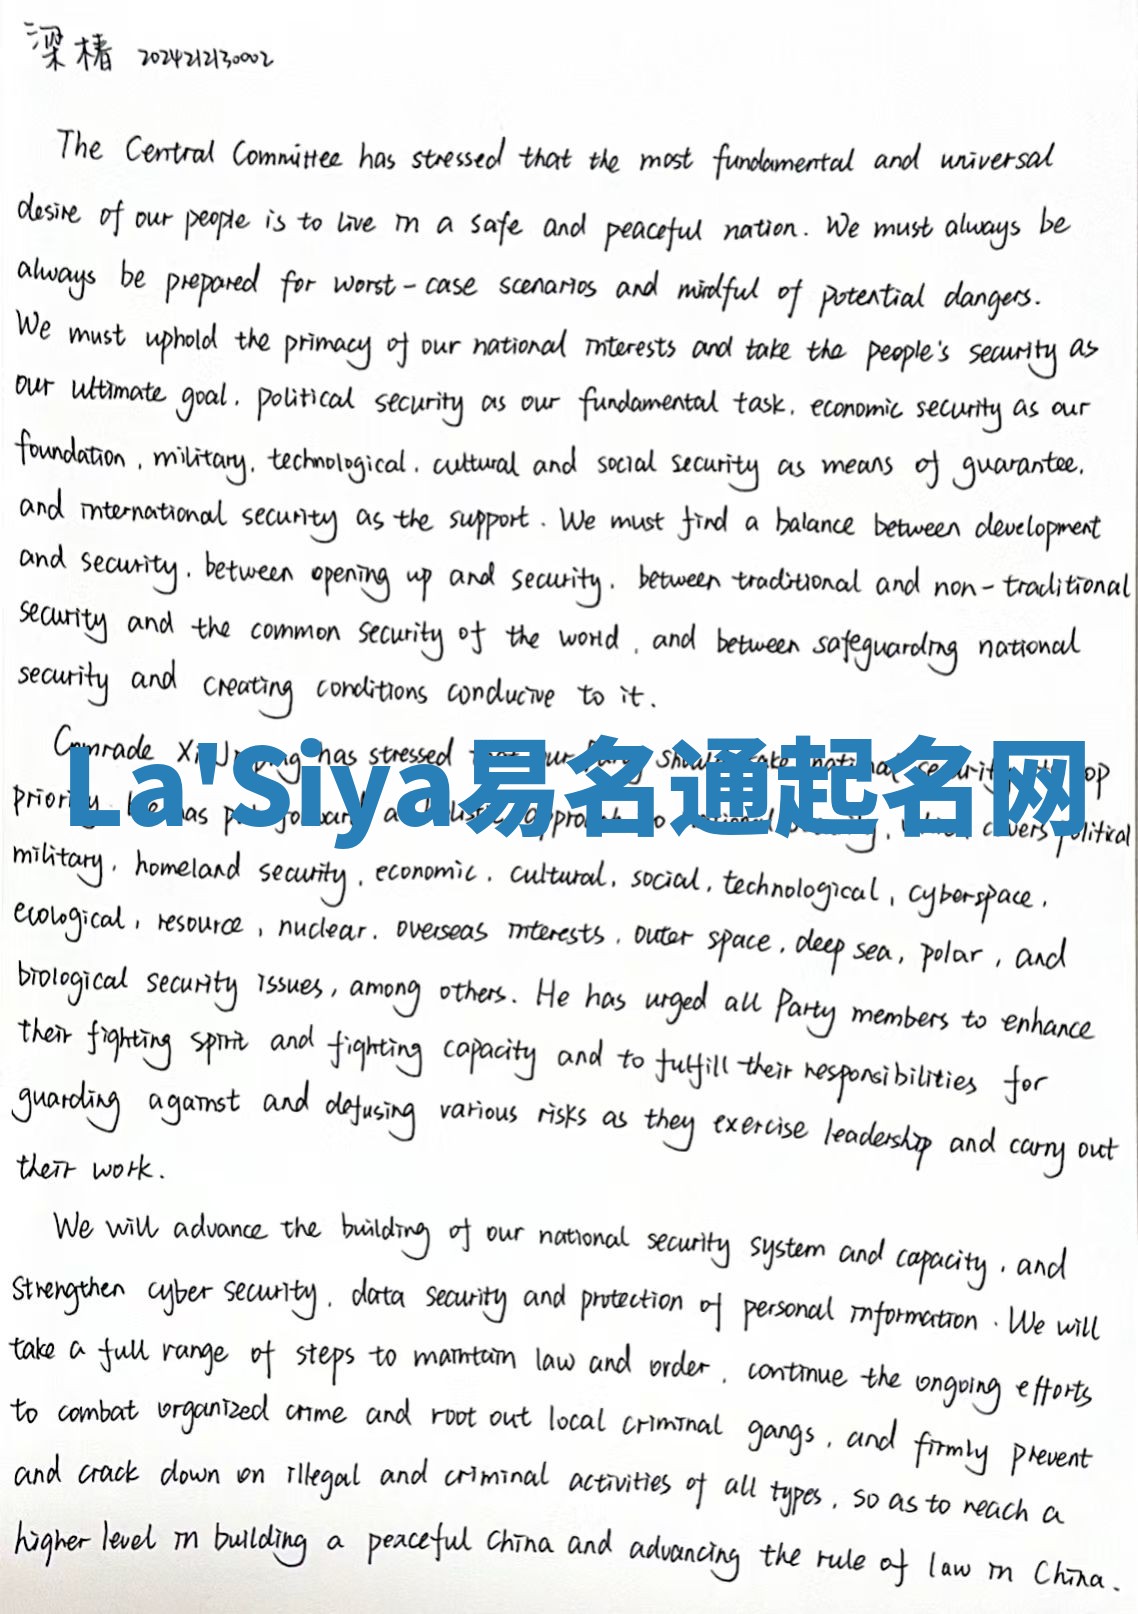 梁椿 2024212130002
The Central Committee has stressed that the most fundamental and universal
desire of our people is to live in a safe and peaceful nation. We must always be
always be prepared for worst-case scenarios and mindful of potential dangers.
We must uphold the primacy of our national interests and take the people's security as
our ultimate goal, political security as our fundamental task, economic security as our
foundation, military, technological, cultural and social security as means of guarantee,
and international security as the support. We must find a balance between development
and security, between opening up and security, between traditional and non-traditional
security and the common security of the world, and between safeguarding national
security and creating conditions conducive to it.
Comrade Xi Jinping has stressed that our Party should take national security top
La'Siya易名通起名网
priority. He has put forward a holistic approach to national security, which covers political
military, homeland security, economic, cultural, social, technological, cyberspace,
ecological, resource, nuclear, overseas interests, outer space, deep sea, polar, and
biological security issues, among others. He has urged all Party members to enhance
their fighting spirit and fighting capacity and to fulfill their responsibilities for
guarding against and defusing various risks as they exercise leadership and carry out
their work.
We will advance the building of our national security system and capacity, and
strengthen cyber security, data security and protection of personal information. We will
take a full range of steps to maintain law and order, continue the ongoing efforts
to combat organized crime and root out local criminal gangs, and firmly prevent
and crack down on illegal and criminal activities of all types, so as to reach a
higher level in building a peaceful China and advancing the rule of law in China.